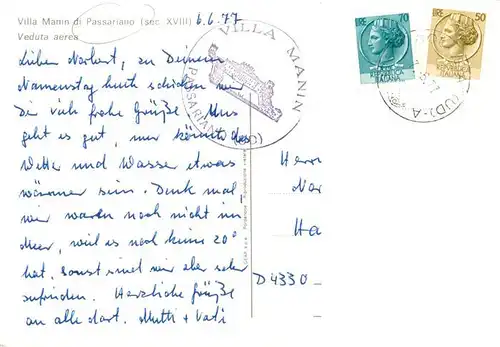 Villa Manin di Passariano (sec. XVIII)
Veduta aerea
6.6.77
Lieber Norbert, zu Deinem
Namenstag heute schicken wir
Dir viele frohe Grüße. Uns
geht es gut, nur könnte das
Wetter und Wasser etwas
wärmer sein. Denk mal,
wir waren noch nicht im
Meer, weil es noch keine 20°
hat. Sonst sind wir aber sehr
zufrieden. Herzliche Grüße
an alle dort. Mutti + Vati
VILLA MANIN
PASSARIANO (UD)
LIRE 70
REPUBBLICA
ITALIANA
LIRE 50
REPUBBLICA
ITALIANA
Herrn
Nor
Ha
D 4330